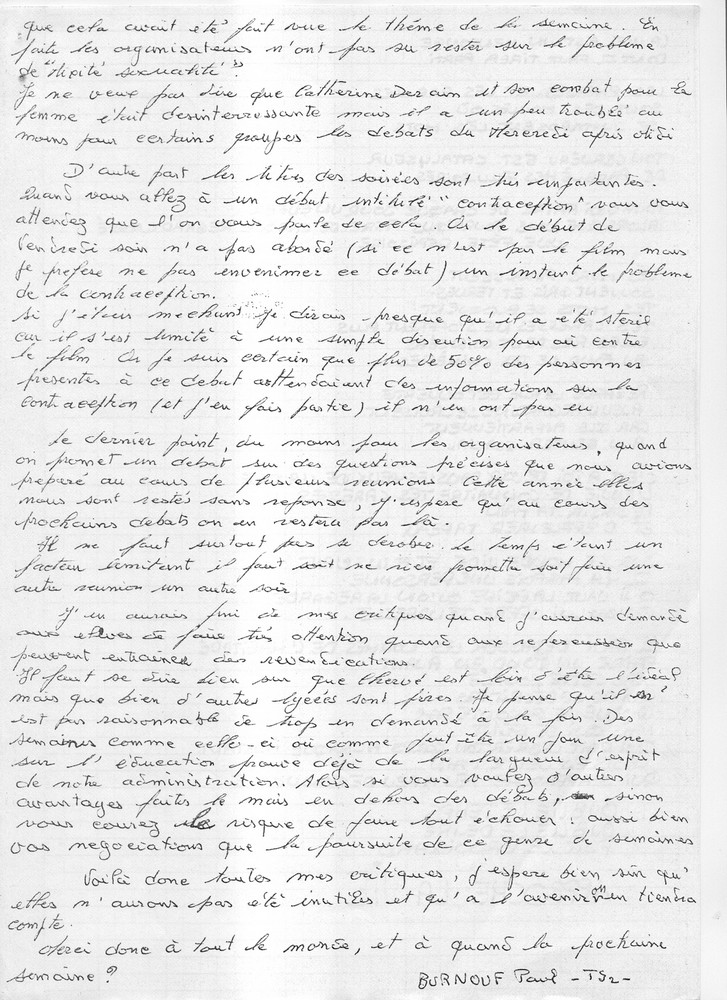 que cela avait été fait vue le thème de la semaine. En
faite les organisateurs n'ont pas su rester sur le problème
de "Mixité sexualité".
Je ne veux pas dire que Catherine Derain et son combat pour la
femme était desinterressante mais il a un peu troublé au
moins pour certains groupes les debats du Mercredi après Midi
D'autre part les titres des soirées sont très importantes.
Quand vous allez à un débat intitulé "contraception" vous vous
attendez que l'on vous parle de cela. Or le début de
Vendredi soir n'a pas abordé (si ce n'est par le film mais
je préfère ne pas envenimer ce débat) un instant le problème
de la contraception.
Si j'étais mechant je dirais presque qu'il a été steril
car il s'est limité à une simple discution pour ou contre
le film. Or je suis certain que plus de 50% des personnes
presentes à ce debat attendaient des informations sur la
contraception (et j'en fais partie) il n'en ont pas eu
Le dernier point, du moins pour les organisateurs, quand
on promet un debat sur des questions précises que nous avions
préparé au cours de plusieurs reunions. Cette année elles
nous sont restés sans reponse, j'espere qu'au cours des
prochains debats on en restera pas là.
Il ne faut surtout pas se derober. Le temps étant un
facteur limitant il faut soit ne rien promettre soit faire une
autre reunion un autre soir
J'en aurais fini de mes critiques quand j'aurais demandé
aux élèves de faire très attention quand aux repercussion que
peuvent entrainer des revendications.
Il faut se dire bien sur que l'hervé est loin d'être l'idéal
mais que bien d'autres lycées sont pires. Je pense qu'il n'
est pas raisonnable de trop en demandé à la fois. Des
semaines comme celle-ci ou comme peut-être un jour une
sur l'éducation prouve déjà de la largueur d'esprit
de notre administration. Alors si vous voulez d'autres
avantages faites le mais en dehors des débats, sinon
vous courez le risque de faire tout échouer : aussi bien
vos negociations que la poursuite de ce genre de semaines
Voilà donc toutes mes critiques, j'espere bien sûr qu'
elles n'aurons pas été inutiles et qu'à l'avenir on en tiendra
compte.
Merci donc à tout le monde, et à quand la prochaine
semaine ?
BURNOUF Paul - TS2 -